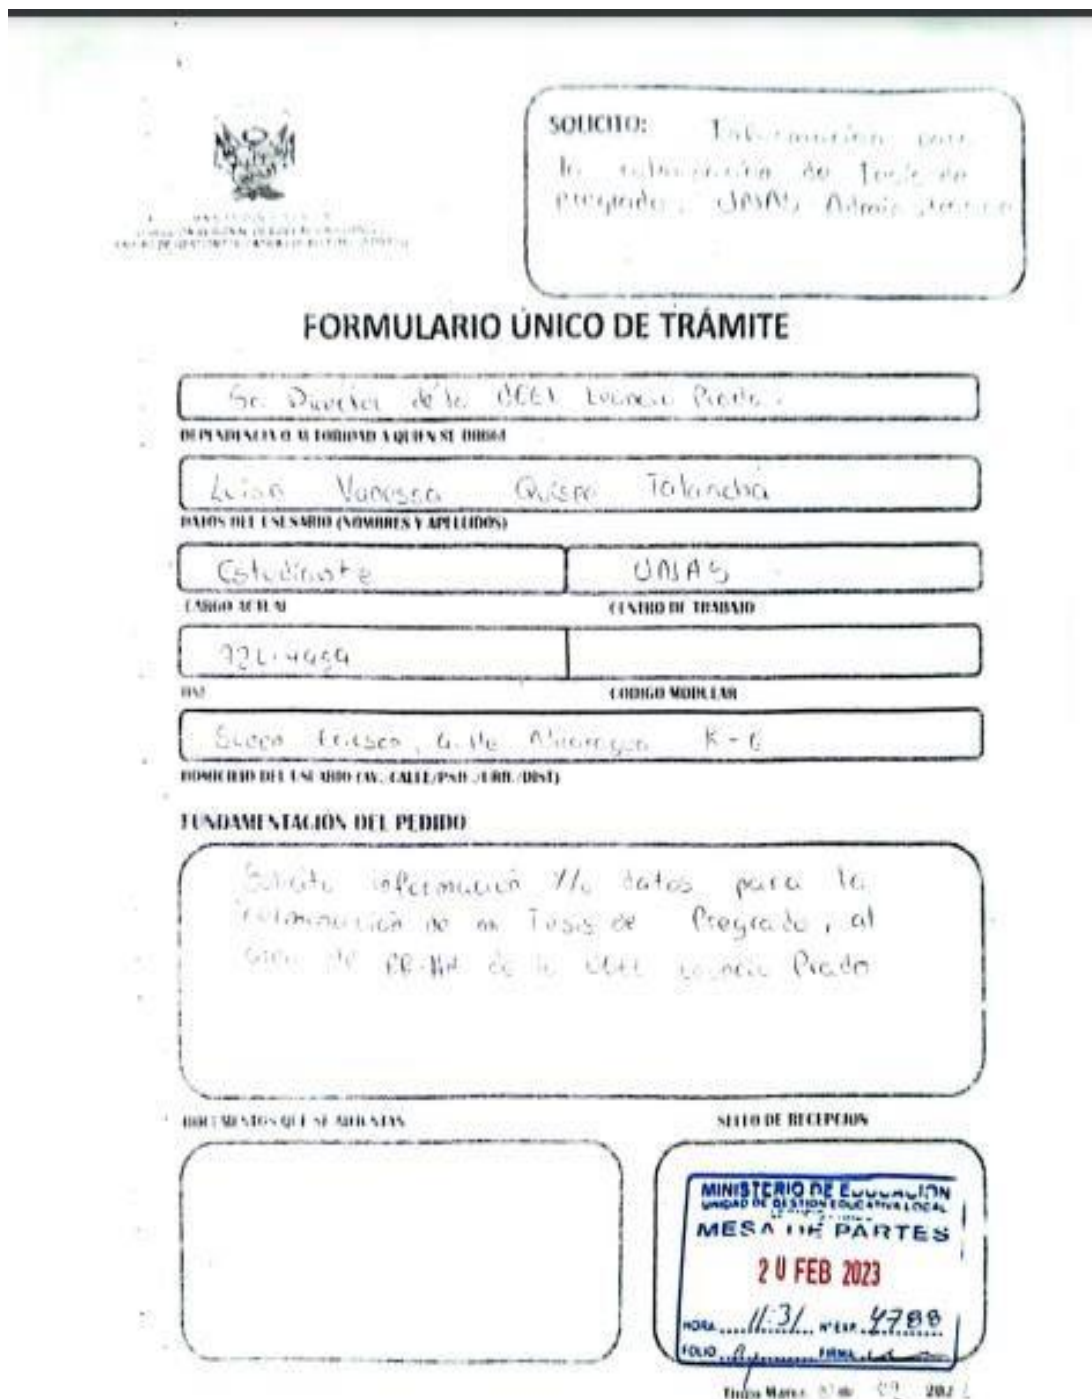 SOLICITO: Información para
la culminación de Tesis de
pregrado, UNAS Administración
FORMULARIO ÚNICO DE TRÁMITE
Sr. Director de la UGEL Leoncio Prado.
DEPENDENCIA O AUTORIDAD A QUIEN SE DIRIGE
Luisa Vanessa Quispe Talancha
DATOS DEL USUSARIO (NOMBRES Y APELLIDOS)
Estudiante UNAS
CARGO ACTUAL CENTRO DE TRABAJO
DNI CODIGO MODULAR
K-6
DOMICILIO DEL USUARIO (AV. CALLE/PSJE./URB./DIST)
FUNDAMENTACIÓN DEL PEDIDO
Solicito información y/o datos para la
culminación de mi Tesis de Pregrado, al
área de RR.HH de la UGEL Leoncio Prado
DOCUMENTOS QUE SE ADJUNTAN SELLO DE RECEPCION
MINISTERIO DE EDUCACIÓN
UNIDAD DE GESTION EDUCATIVA LOCAL
MESA DE PARTES
20 FEB 2023
HORA 11:31 N° EXP. 4788
FOLIO FIRMA
Tingo María